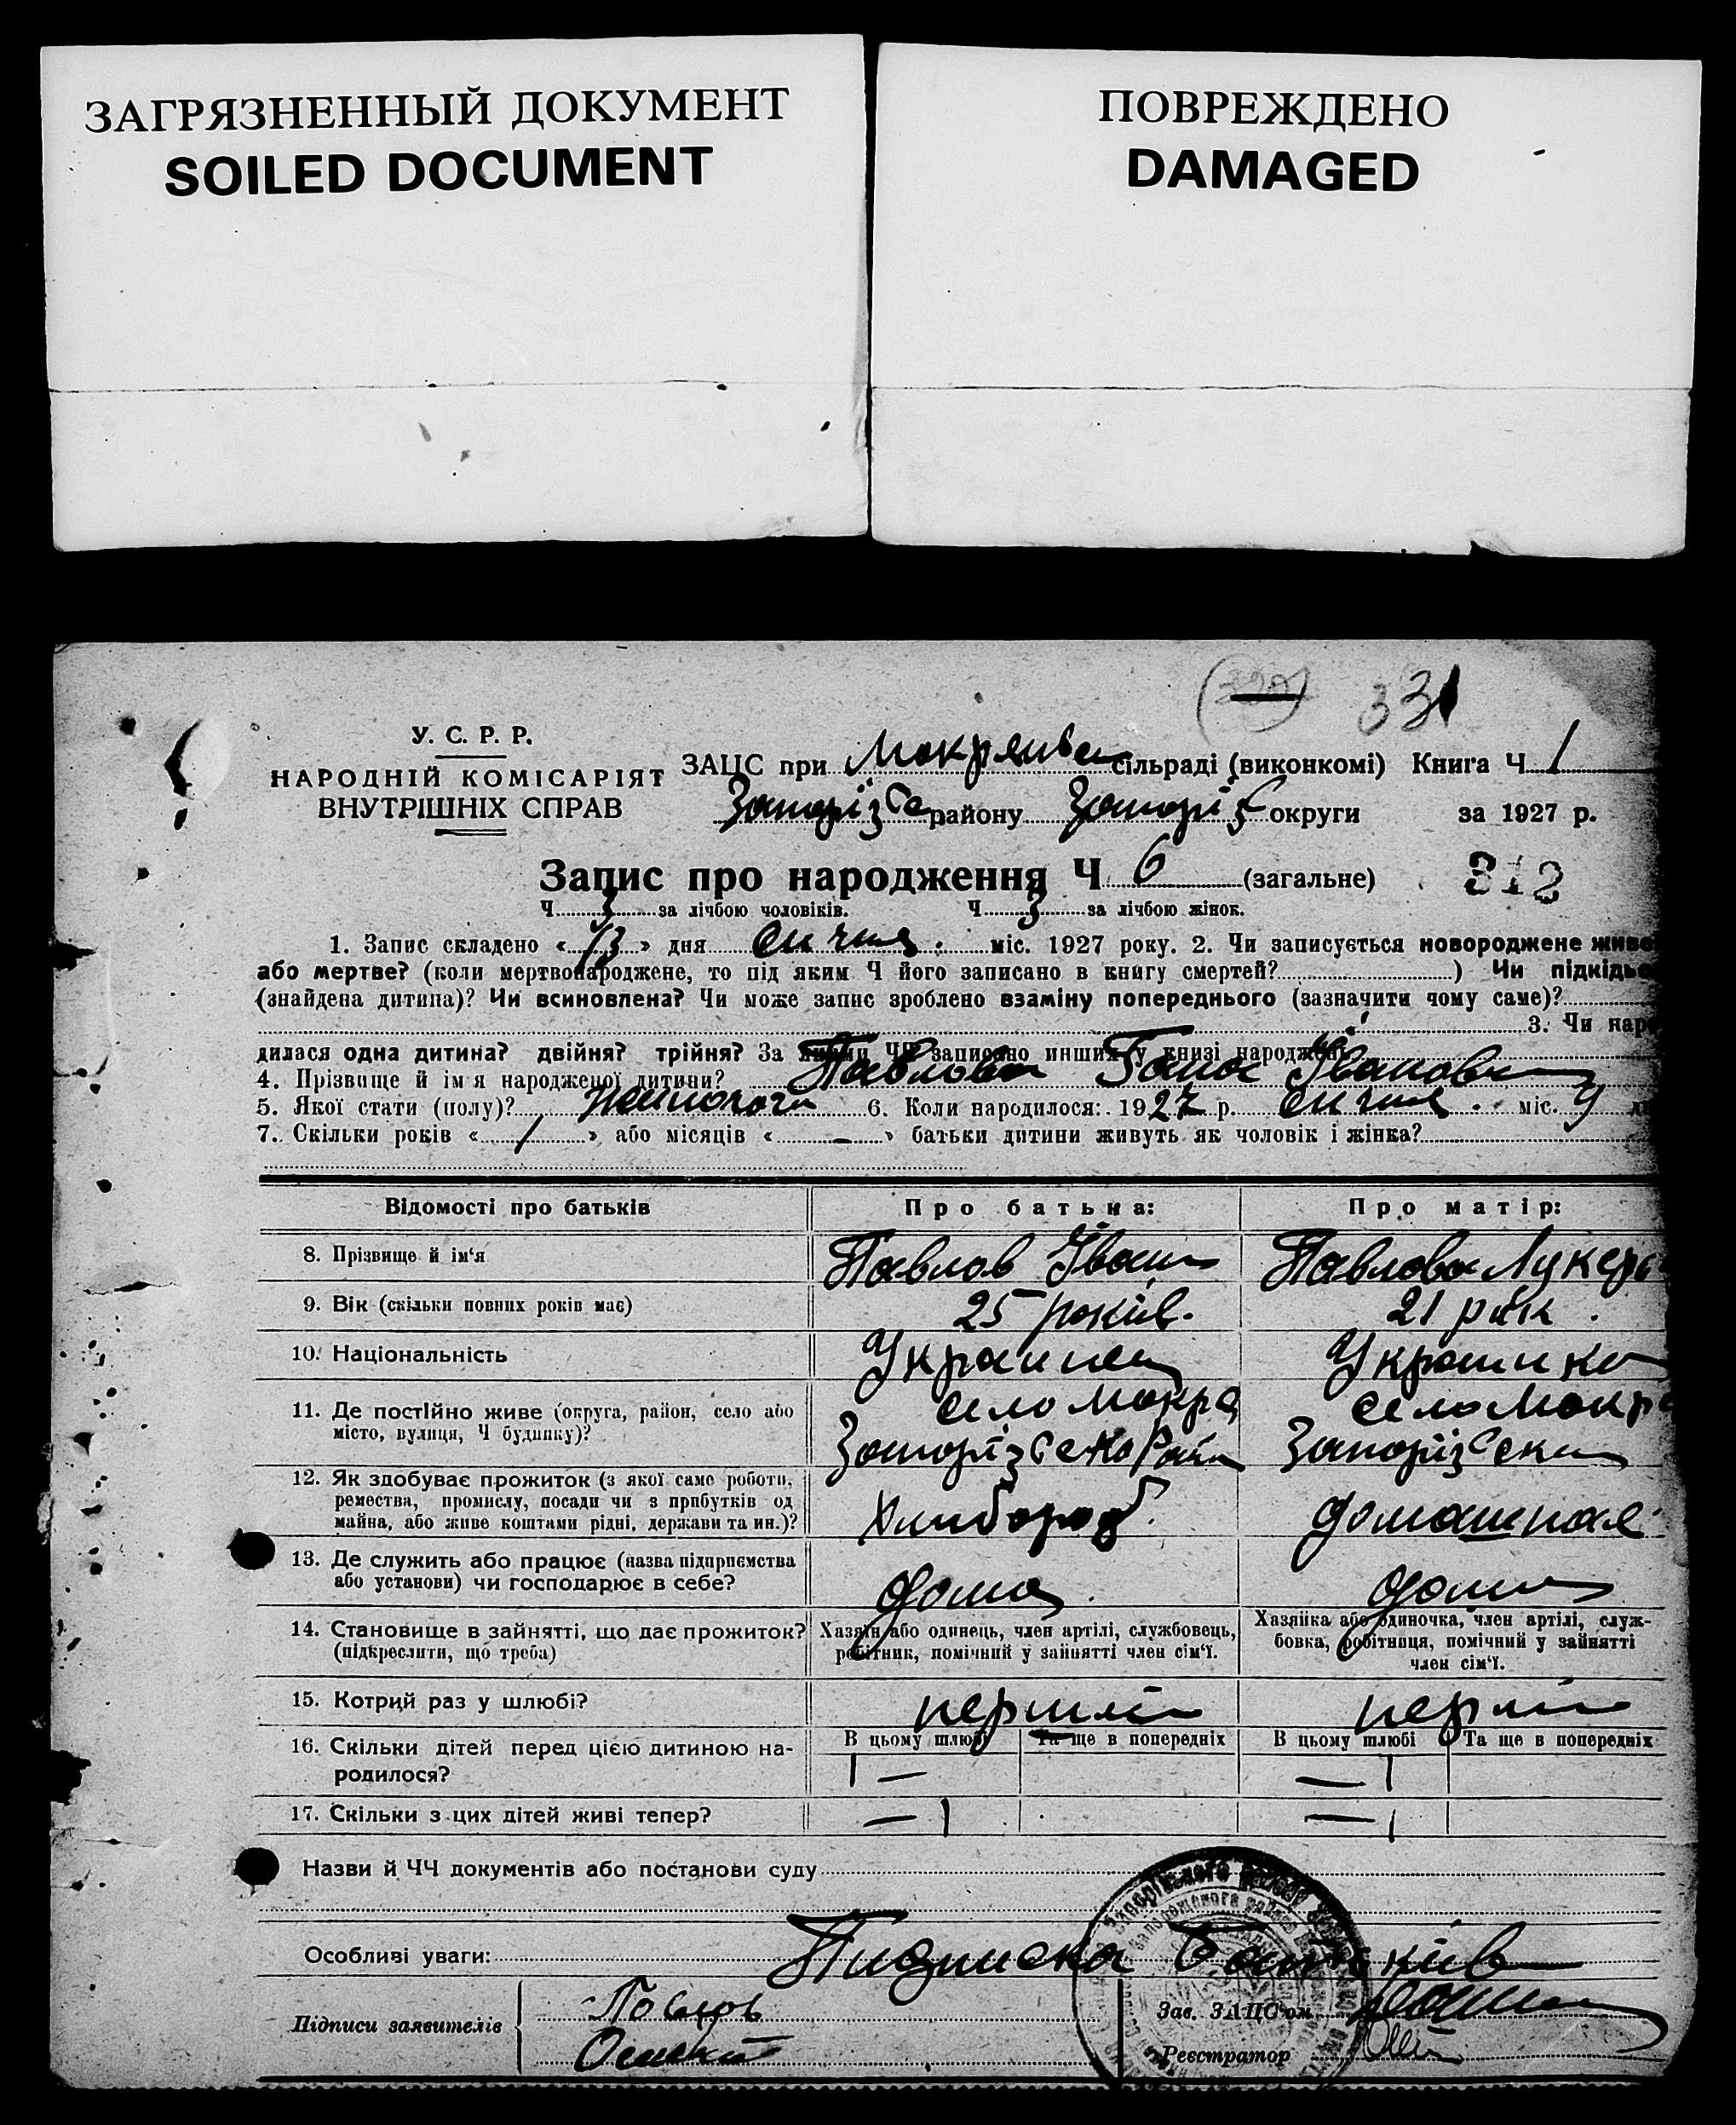 ЗАГРЯЗНЕННЫЙ ДОКУМЕНТ
SOILED DOCUMENT
ПОВРЕЖДЕНО
DAMAGED
331
У. С. Р. Р.
НАРОДНІЙ КОМІСАРІЯТ
ВНУТРІШНІХ СПРАВ
ЗАЦС при сільраді (виконкомі) Книга Ч 1
району округи за 1927 р.
Запис про народження Ч 6 (загальне)
312
Ч 3 за лічбою чоловіків. Ч 3 за лічбою жінок.
1. Запис складено « 13 » дня Січня міс. 1927 року. 2. Чи записується новороджене живе
або мертве? (коли мертвонароджене, то під яким Ч його записано в книгу смертей? ) Чи підкідь
(знайдена дитина)? Чи всиновлена? Чи може запис зроблено взаміну попереднього (зазначити чому саме)?
3. Чи наро
дилася одна дитина? двійня? трійня? За якими ЧЧ записано инших у книзі народжень
4. Прізвище й ім'я народженої дитини? Павлова Ганна Іванова
5. Якої стати (полу)? 6. Коли народилося: 1927 р. Січня міс. 9
7. Скільки років « 1 » або місяців « — » батьки дитини живуть як чоловік і жінка?
Відомості про батьків Про батька: Про матір:
8. Прізвище й ім‘я Павлов Іван Павлова Лукер
9. Вік (скільки повних років має) 25 років. 21 рік.
10. Національність Українец Українка
11. Де постійно живе (округа, район, село або село Мокра село Мокра
місто, вулиця, Ч будинку)?
12. Як здобуває прожиток (з якої само роботи,
ремества, промислу, посади чи з прибутків од
майна, або живе коштами рідні, держави та ин.)? Хлібороб. домашная
13. Де служить або працює (назва підприємства
або установи) чи господарює в себе? дома дома
14. Становище в зайнятті, що дає прожиток? Хазяїн або одинець, член артілі, службовець, Хазяйка або одиночка, член артілі, служ-
(підкреслити, що треба) робітник, помічний у зайнятті член сім‘ї. бовка, робітниця, помічний у зайнятті
член сім‘ї.
15. Котрий раз у шлюбі? перший перший
16. Скільки дітей перед цією дитиною на- В цьому шлюбі Та ще в попередніх В цьому шлюбі Та ще в попередніх
родилося? 1 — — 1
17. Скільки з цих дітей живі тепер? — 1 — 1
Назви й ЧЧ документів або постанови суду
Особливі уваги: Підписка Батьків
Підписи заявителів Зав. ЗАЦС'ом
Реєстратор